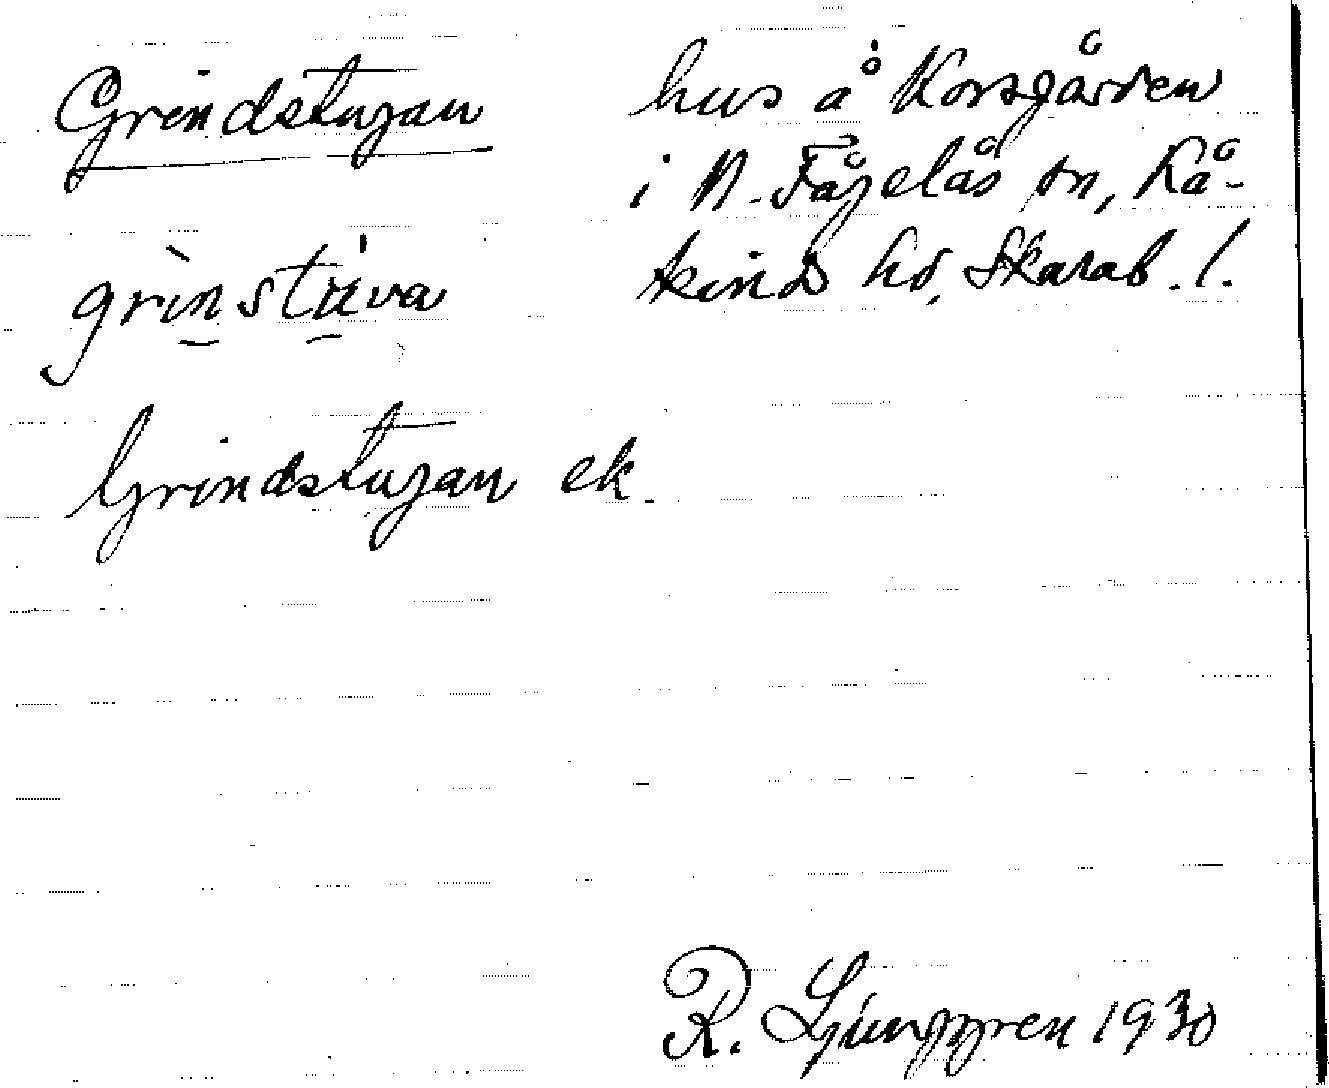 Grindstugan
hus å Korsgården
i N. Fågelås sn, Kå-
kinds hd, Skarab. l.
grìnstùva
Grindstugan ek.
R. Ljunggren 1930